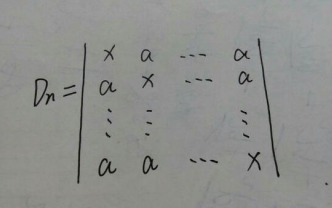 Dn = | x a ... a |
| a x ... a |
| ⋮ ⋮ ⋮ |
| a a ... x | .